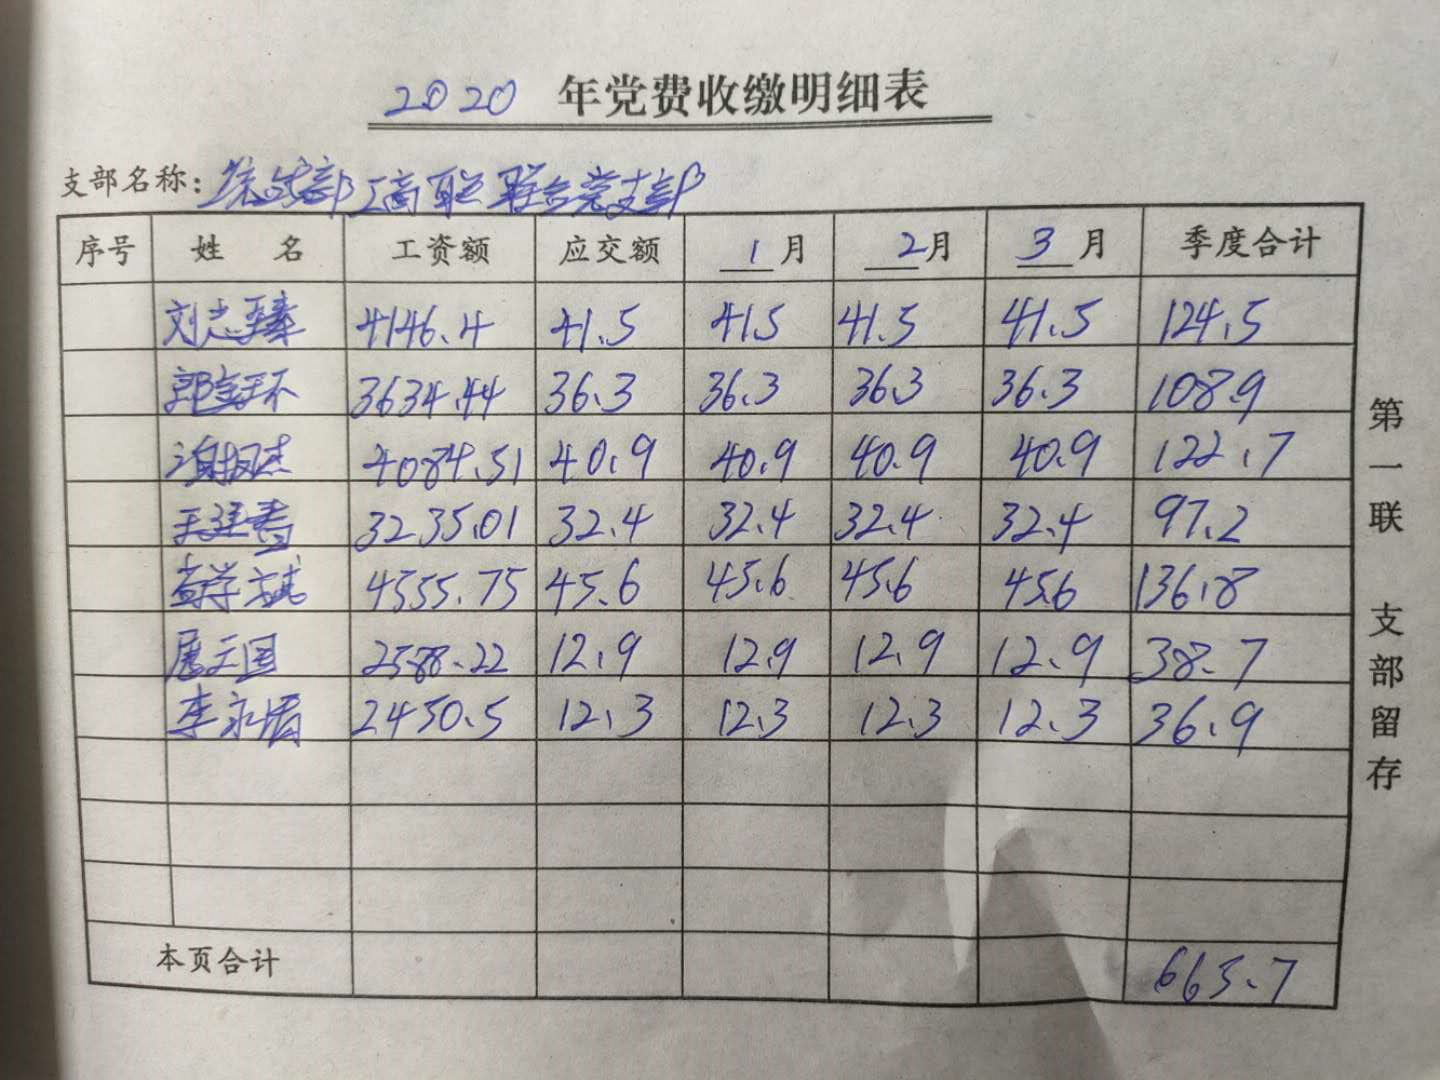 2020 年党费收缴明细表
支部名称：统战部工商联联合党支部
序号 姓名 工资额 应交额 1月 2月 3月 季度合计
刘志 4146.4 41.5 41.5 41.5 41.5 124.5
郭 环 3634.44 36.3 36.3 36.3 36.3 108.9
杰 4084.51 40.9 40.9 40.9 40.9 122.7
王廷 3235.01 32.4 32.4 32.4 32.4 97.2
学斌 4555.75 45.6 45.6 45.6 45.6 136.8
展立国 2588.22 12.9 12.9 12.9 12.9 38.7
李永 2450.5 12.3 12.3 12.3 12.3 36.9
本页合计 665.7
第一联 支部留存